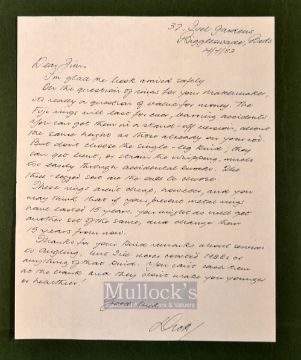 37, Ivel Gardens
Biggleswade, Beds
Dear Jim,
I'm glad the book arrived safely
On the question of rings for your Mark
it's really a question of value for money. The
Fuji rings will last for ever, barring accidents
You can get them in a stand-off version, about
the same height as those already on your rod
But don't choose the single-leg kind, they
can get bent, or strain the whipping, much
too easily through accidental knocks. The
three-legged sort are the ones to choose
These rings aren't cheap, however, and you
may think that if your present metal rings
have lasted 15 years, you might as well get
another lot of the same, and change them
15 years from now.
Thanks for your kind remarks about services
to Angling, but I've never coveted MBEs or
anything of that kind. You can't cash them
at the bank and they don't make you younger
or healthier!
Good luck
Mullock's
& Valuers